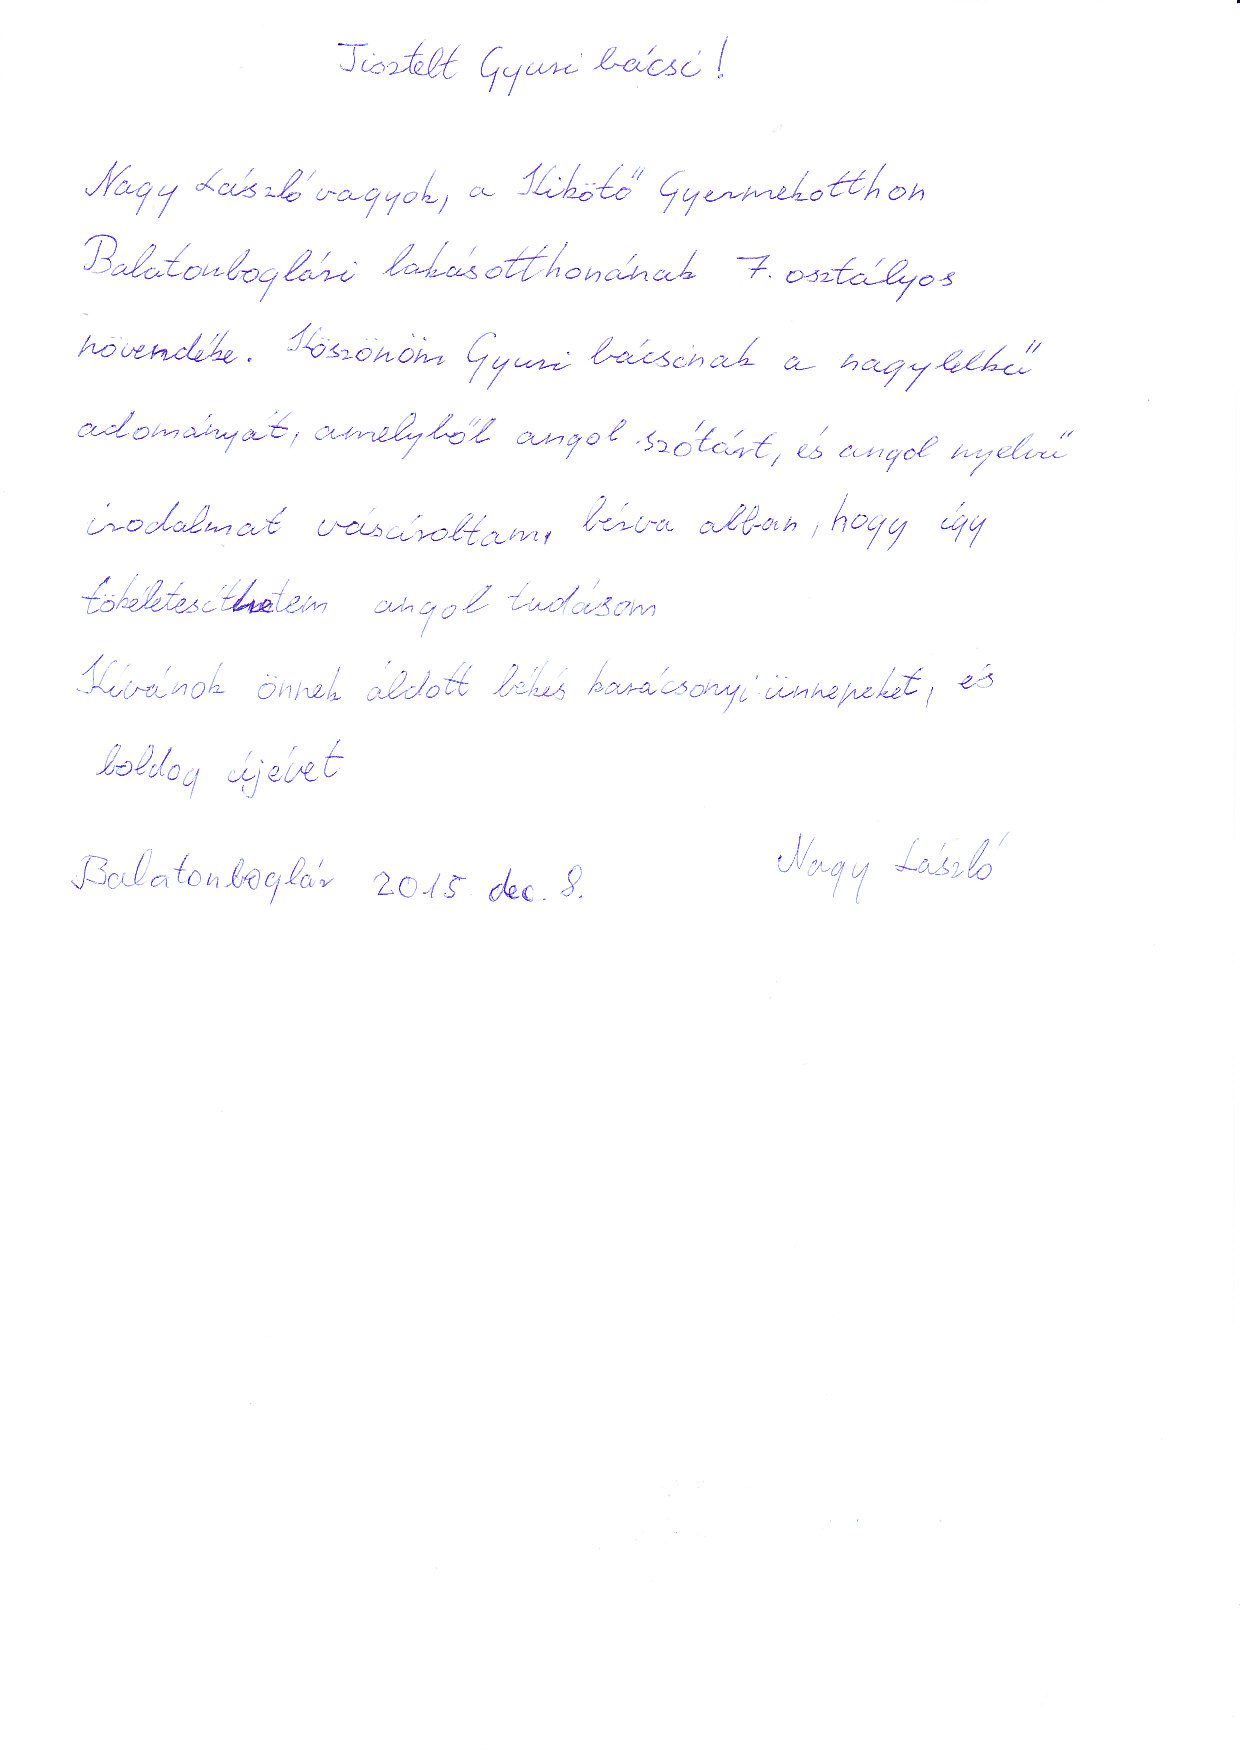 Tisztelt Gyuri bácsi!
Nagy László vagyok, a Kikötő Gyermekotthon
Balatonboglári lakásotthonának 7. osztályos
növendéke. Köszönöm Gyuri bácsinak a nagylelkű
adományát, amelyből angol szótárt, és angol nyelvű
irodalmat vásároltam, bízva abban, hogy így
tökéletesíthetem angol tudásom
Kívánok önnek áldott békés karácsonyi ünnepeket, és
boldog újévet
Nagy László
Balatonboglár 2015 dec. 8.